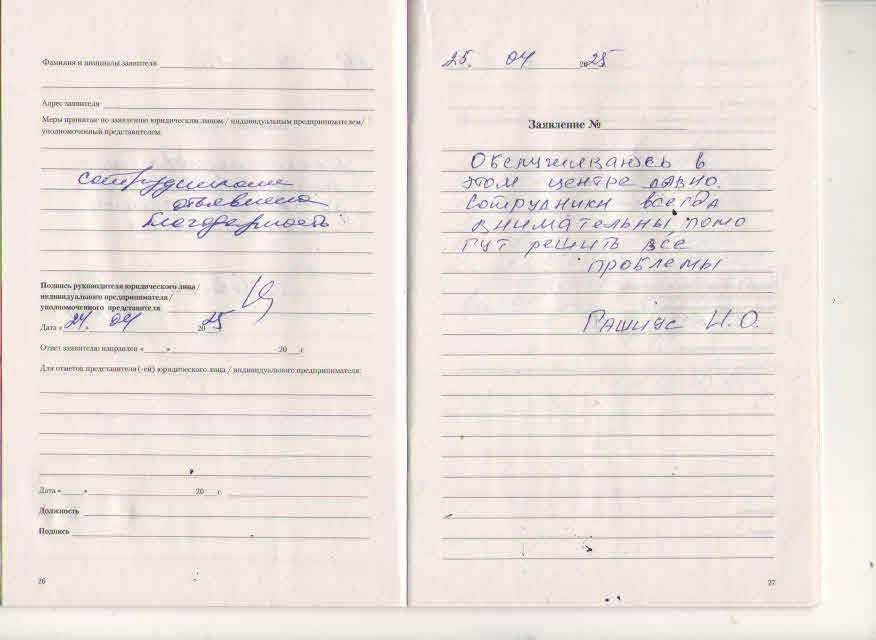 Фамилия и инициалы заявителя
Адрес заявителя
Меры принятые по заявлению юридическим лицом / индивидуальным предпринимателем/
уполномоченный представителем:
сотрудникам
объявлена
благодарность
Подпись руководителя юридического лица /
индивидуального предпринимателя/
уполномоченного представителя
Дата « 24. 04 2025
Ответ заявителю направлен « » 20 г
Для отметок представителя (-ей) юридического лица / индивидуального предпринимателя:
Дата « » 20 г
Должность
Подпись
26
25. 04 2025
Заявление №
Обслуживаюсь в
этом центре давно.
Сотрудники всегда
внимательны, помо
гут решить все
проблемы
И.О.
27